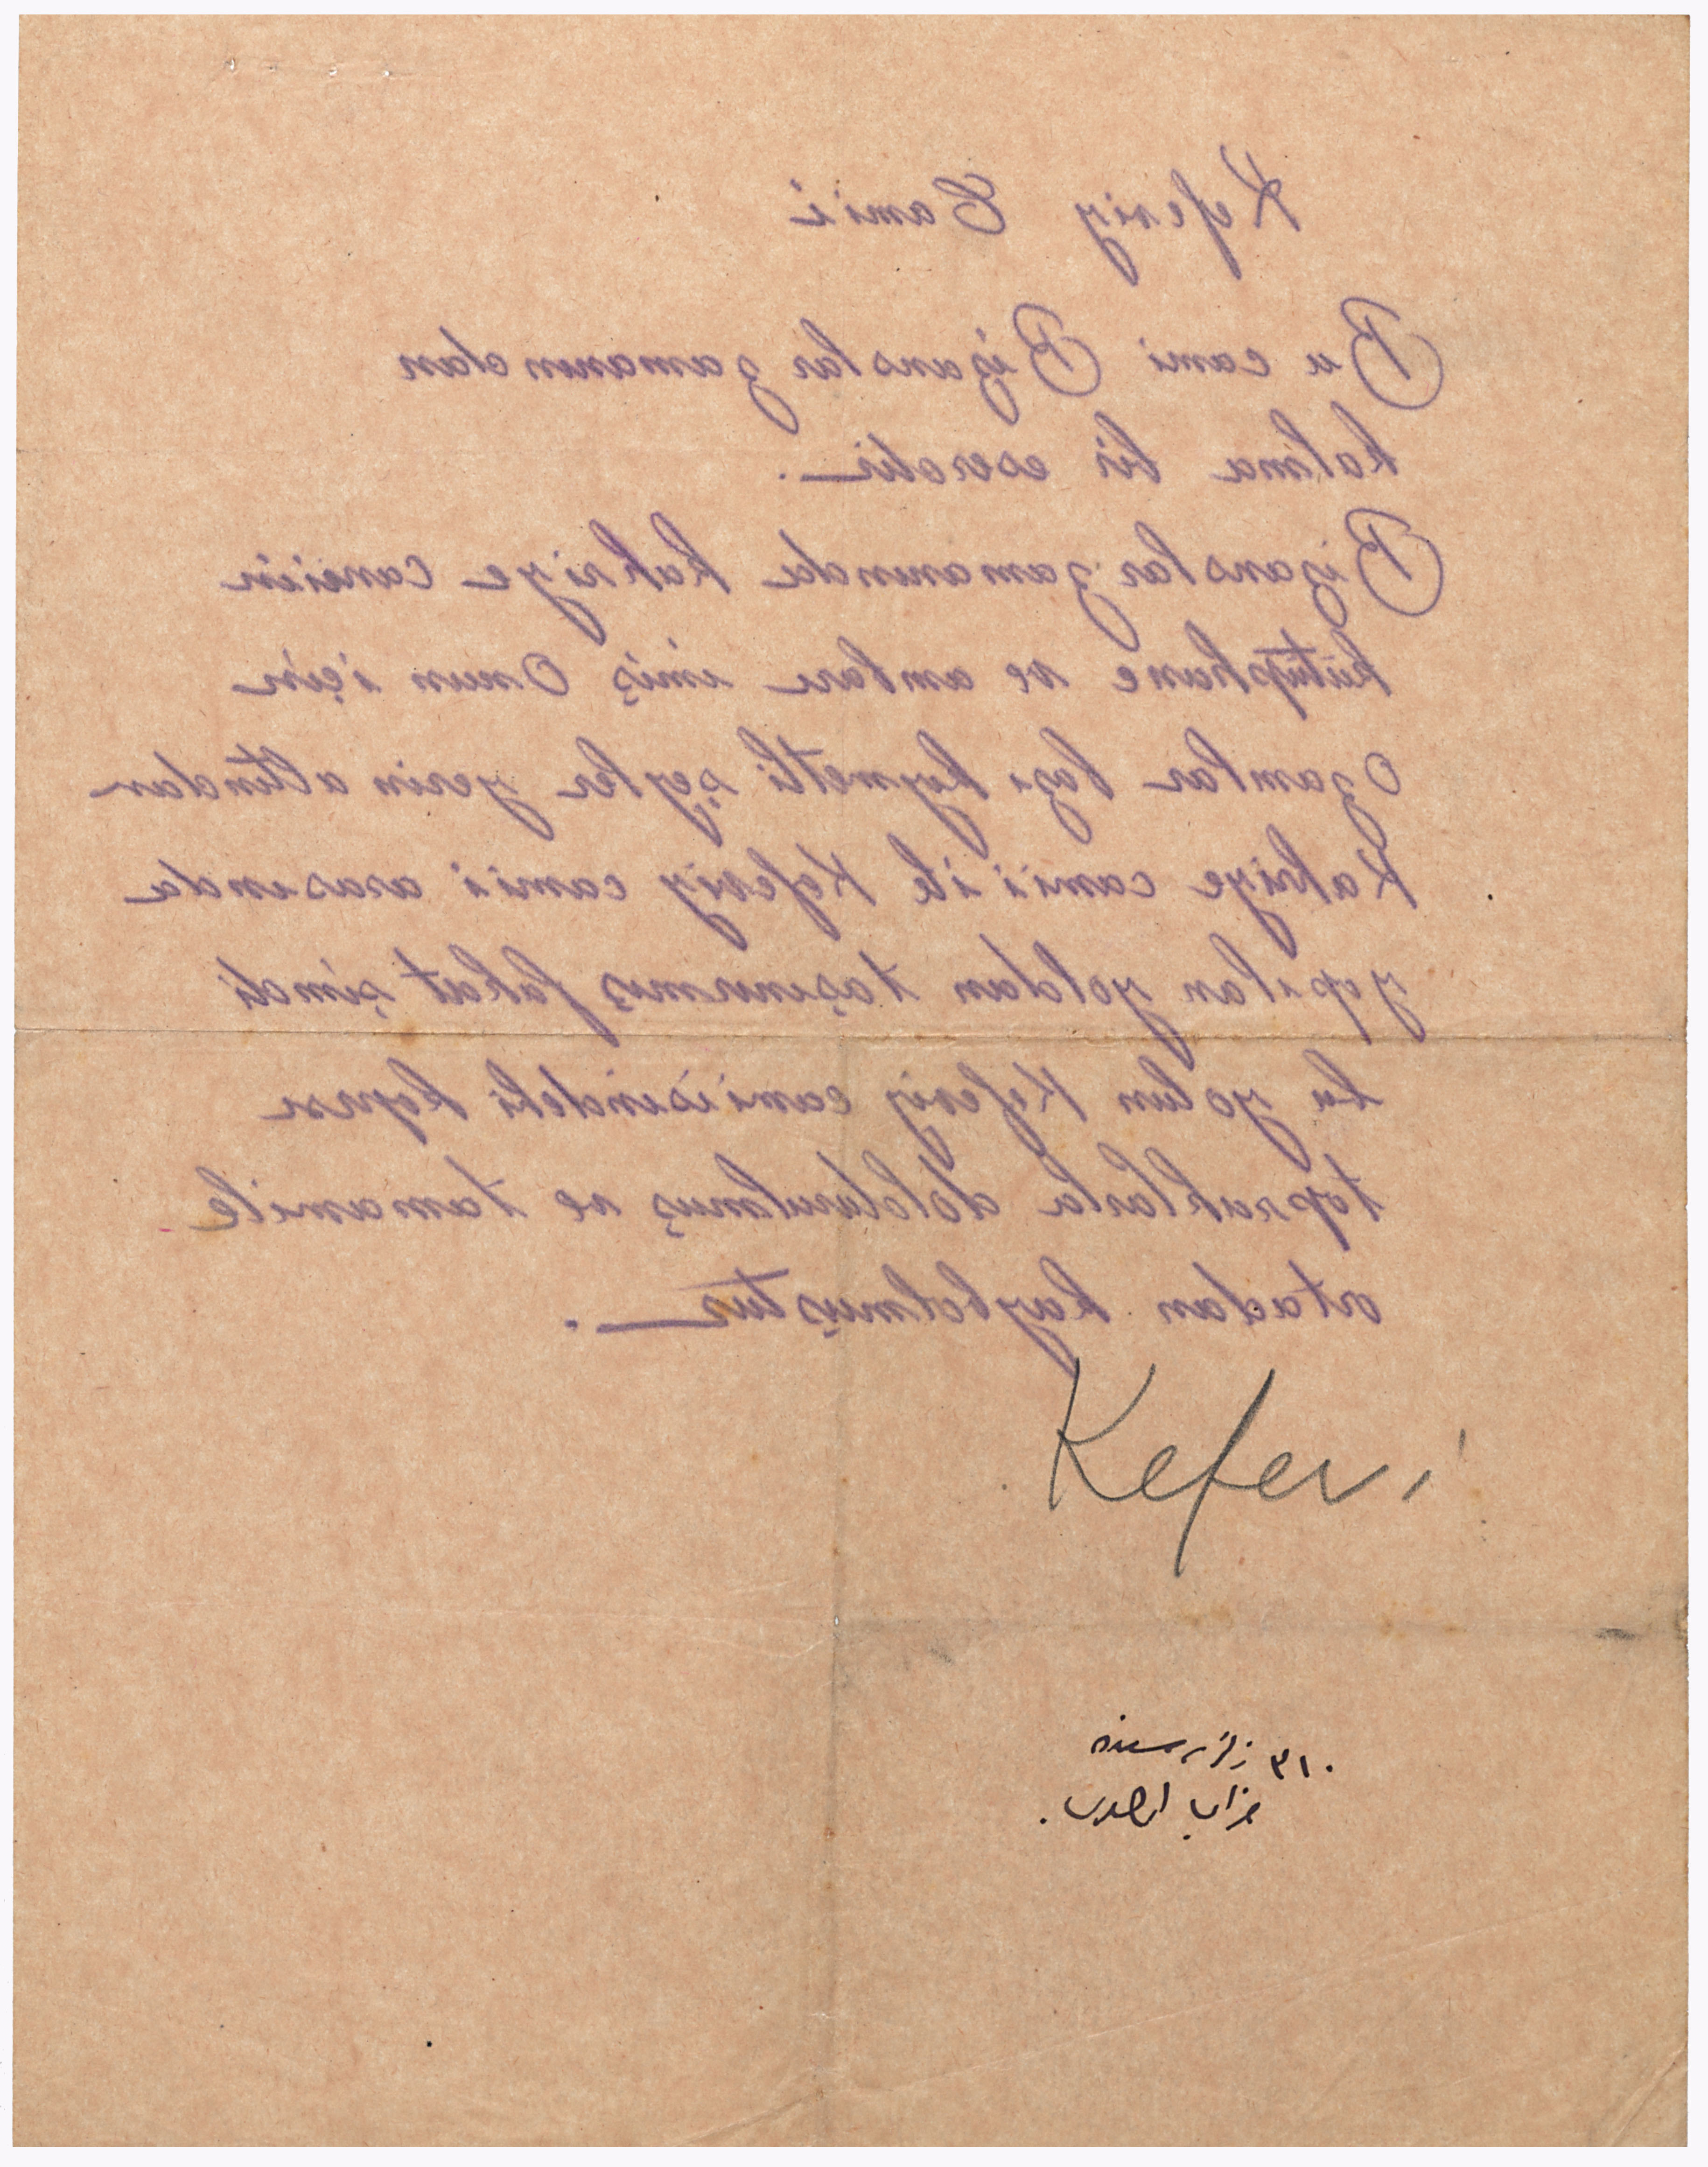 Kefeviy Camii
Bu cami Bizanslar zamanından
kalma bir eserdir.
Bizanslar zamanında kahriye camiin
kütüphane ve ambarı imiş Onun için
O zamlar bazı kıymetli şeyler yerin altından
Kahriye camii ile Kefeviy camii arasında
yapılan yoldan taşınırmış fakat şimdi
bu yolun Kefeviy camiisindeki kapısı
topraklarla doldurulmuş ve tamamile
ortadan kaybolmuştur.
Kefevi
٣١٠ زلزله سنده
خراب اولمش.